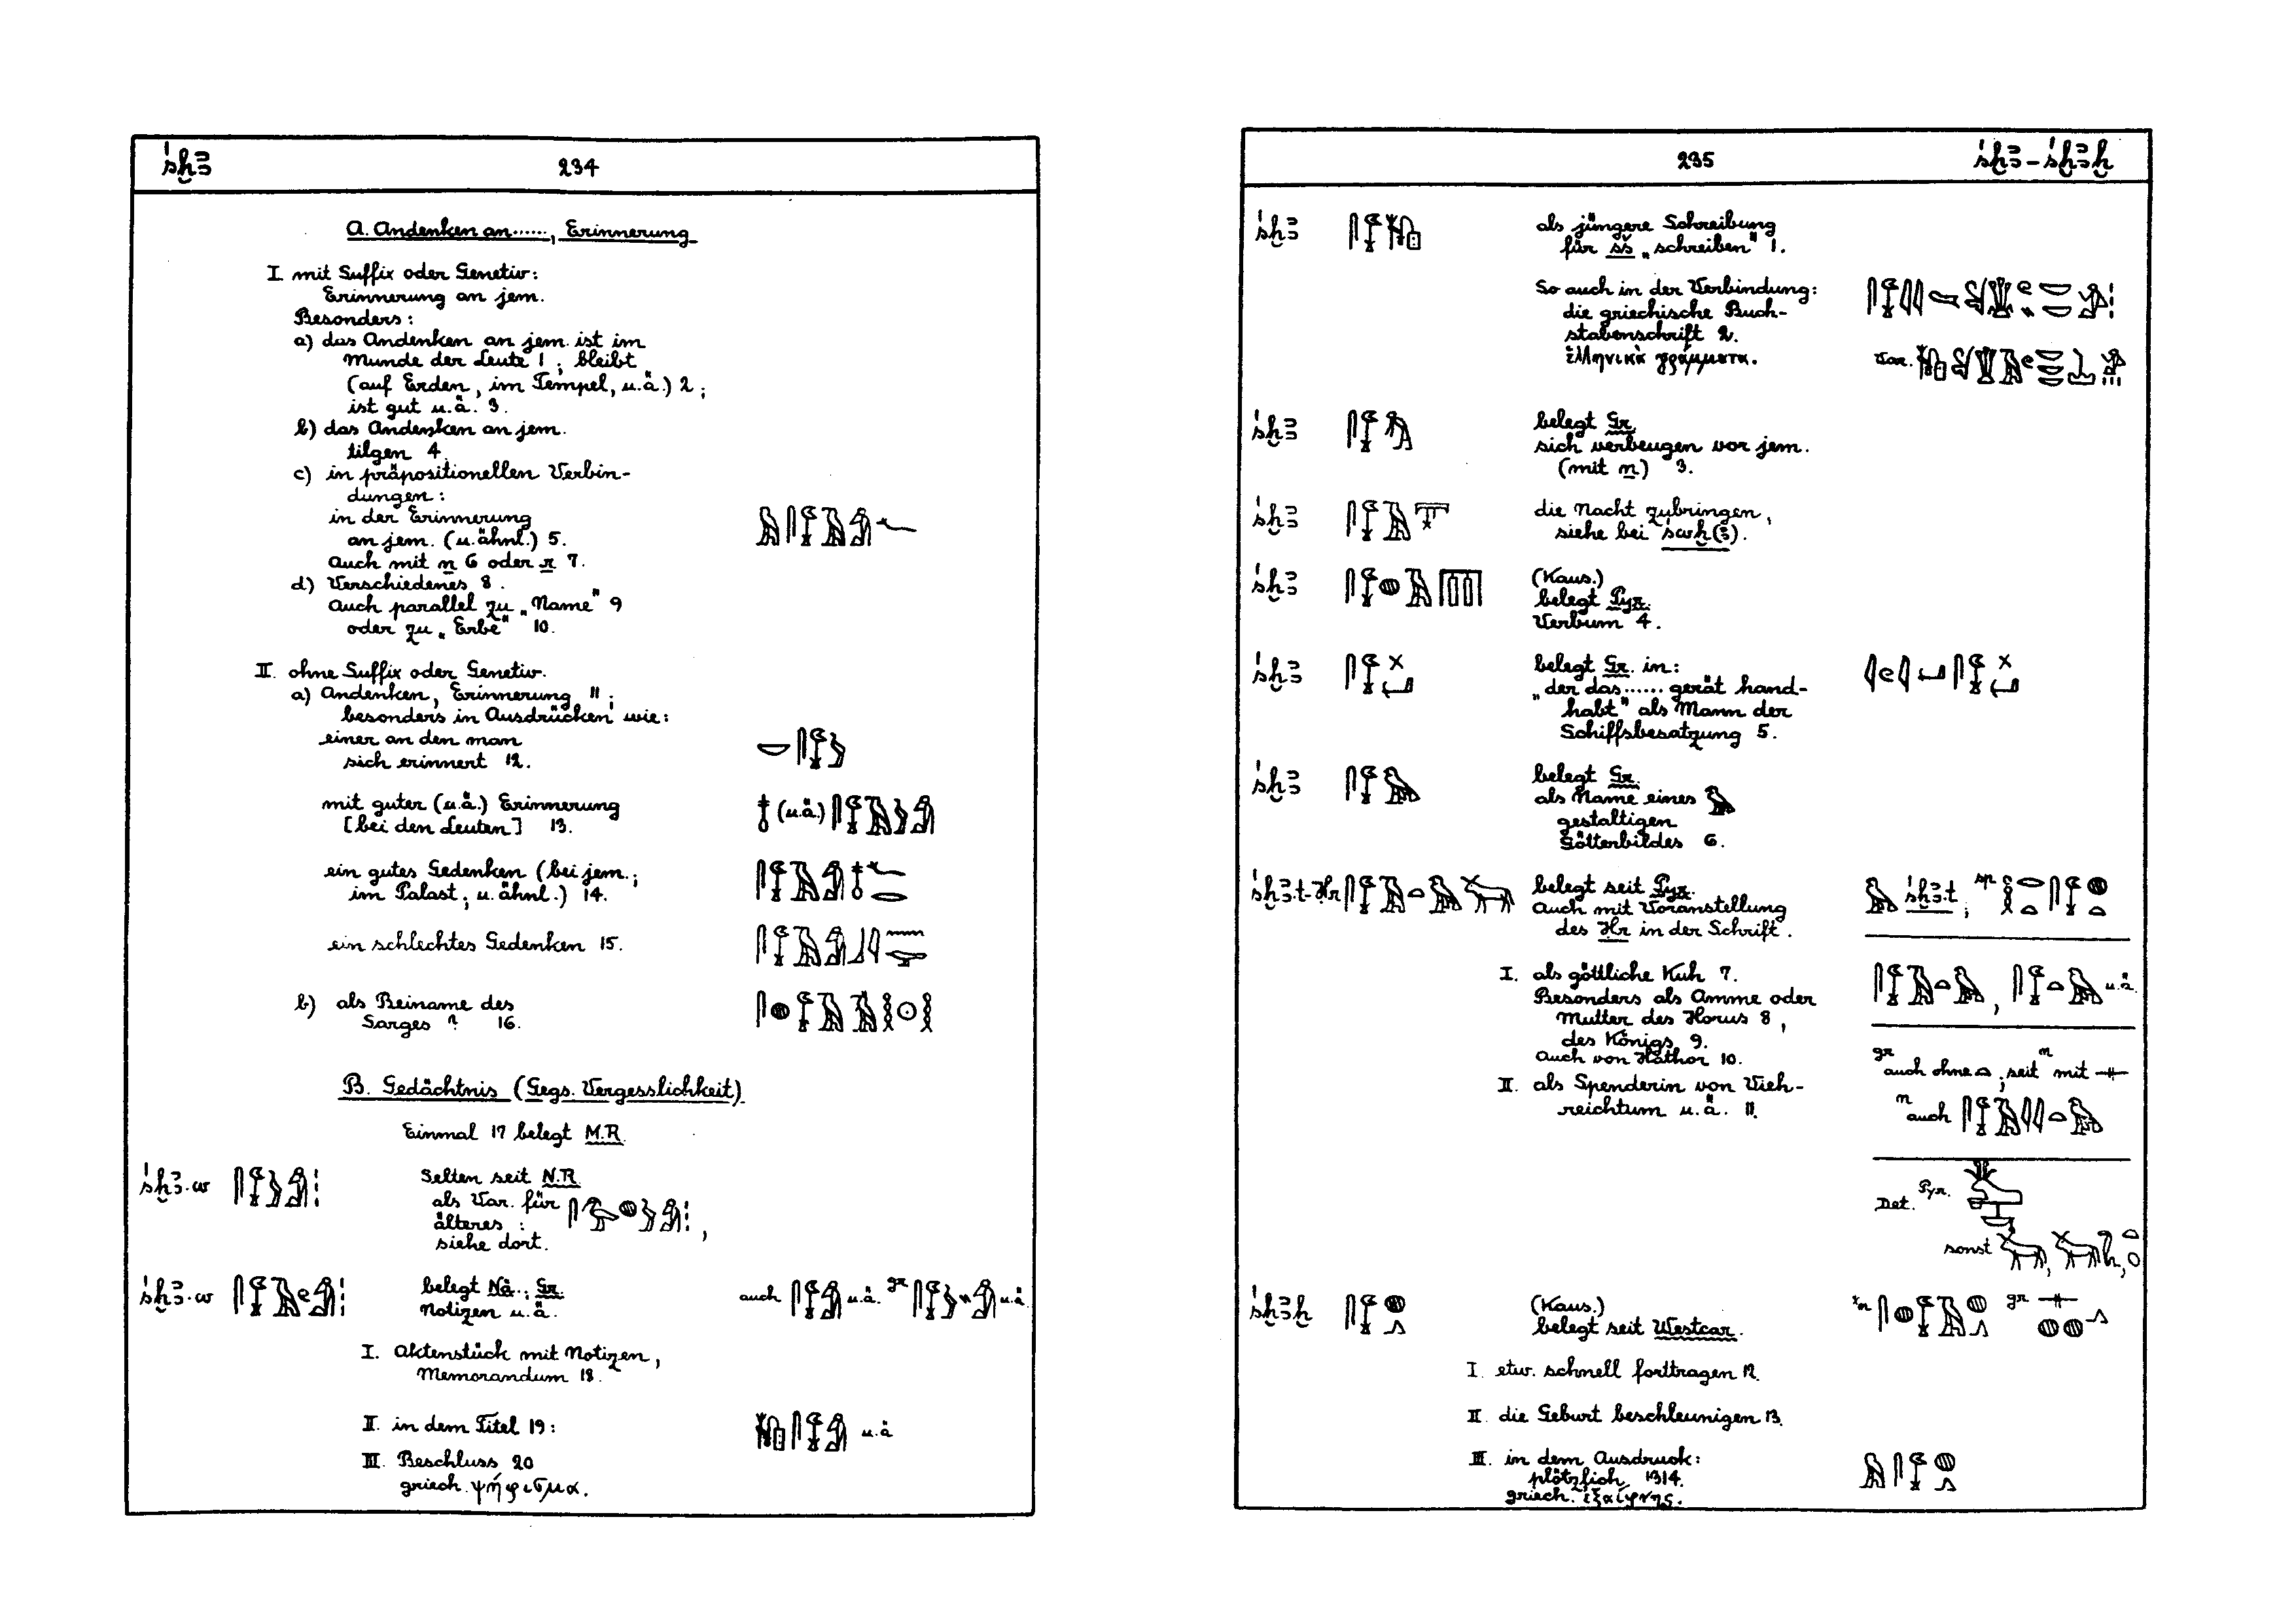 śḫꜣ 234
A. Andenken an ......, Erinnerung
I. mit Suffix oder Genetiv:
Erinnerung an jem.
Besonders:
a) das Andenken an jem. ist im
Munde der Leute 1; bleibt
(auf Erden, im Tempel, u.ä.) 2;
ist gut u.ä. 3.
b) das Andenken an jem.
tilgen 4.
c) in präpositionellen Verbin-
dungen:
in der Erinnerung
an jem. (u.ähnl.) 5.
Auch mit n 6 oder r 7.
d) Verschiedenes 8.
Auch parallel zu „Name" 9
oder zu „Erbe" 10.
II. ohne Suffix oder Genetiv.
a) Andenken, Erinnerung 11;
besonders in Ausdrücken wie:
einer an den man
sich erinnert 12.
mit guter (u.ä.) Erinnerung (u.ä.)
[bei den Leuten] 13.
ein gutes Gedenken (bei jem.;
im Palast; u.ähnl.) 14.
ein schlechtes Gedenken 15.
b) als Beiname des
Sarges ? 16.
B. Gedächtnis (Gegs. Vergesslichkeit)
Einmal 17 belegt M.R.
śḫꜣ.w Selten seit N.R.
als Var. für
älteres: ,
siehe dort.
śḫꜣ.w belegt Nä.; Gr. auch u.ä. gr u.ä.
Notizen u.ä.
I. Aktenstück mit Notizen,
Memorandum 18.
II. in dem Titel 19: u.ä
III. Beschluss 20
griech. ψήφισμα.
235 śḫꜣ – śḫꜣḫ
śḫꜣ als jüngere Schreibung
für sš „schreiben" 1.
So auch in der Verbindung:
die griechische Buch-
stabenschrift 2.
ἑλληνικὰ γράμματα. Var.
śḫꜣ belegt Gr.
sich verbeugen vor jem.
(mit n) 3.
śḫꜣ die Nacht zubringen,
siehe bei śwḫ(ꜣ).
śḫꜣ (Kaus.)
belegt Pyr.
Verbum 4.
śḫꜣ belegt Gr. in:
„der das ...... gerät hand-
habt" als Mann der
Schiffsbesatzung 5.
śḫꜣ belegt Gr.
als Name eines
gestaltigen
Götterbildes 6.
śḫꜣ.t-Ḥr belegt seit Pyr. śḫꜣ.t; sp
Auch mit Voranstellung
des Ḥr in der Schrift.
I. als göttliche Kuh 7. , u.ä.
Besonders als Amme oder
Mutter des Horus 8,
des Königs 9.
Auch von Hathor 10. gr auch ohne ; seit n mit
II. als Spenderin von Vieh-
reichtum u.ä. 11. n auch
Det. Pyr.
sonst , ,
śḫꜣḫ (Kaus.) gr
belegt seit Westcar.
I. etw. schnell forttragen 12.
II. die Geburt beschleunigen 13.
III. in dem Ausdruck:
plötzlich 1314.
griech. ἐξαίφνης.